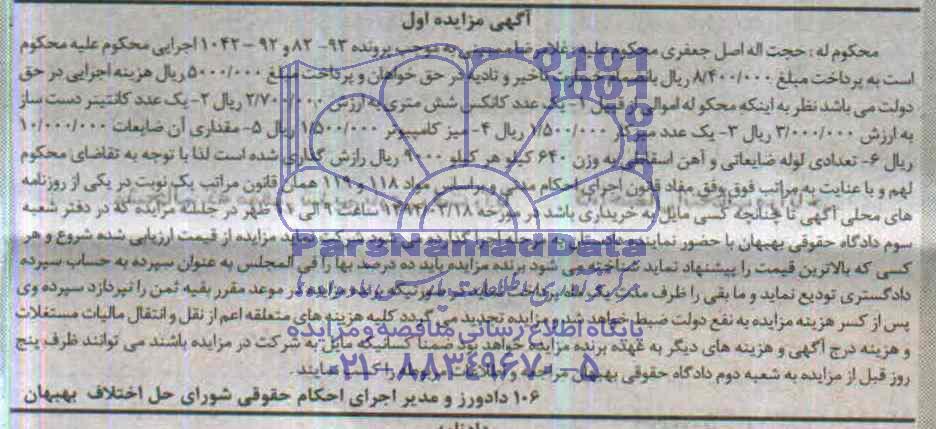 آگهی مزایده اول
محکوم له : حجت اله اصل جعفری محکوم علیه : غلامرضا به موجب پرونده ۹۳- ۸۲ و ۹۲ - ۱۰۴۲ اجرایی محکوم علیه محکوم
است به پرداخت مبلغ ۸/۴۰۰/۰۰۰ ریال بانضمام خسارت تاخیر و تادیه در حق خواهان و پرداخت مبلغ ۵۰۰۰/۰۰۰ ریال هزینه اجرایی در حق
دولت می باشد نظر به اینکه محکو له اموالی از قبیل ۱- یک عدد کانکس شش متری به ارزش ۲/۷۰۰/۰۰۰ ریال ۲- یک عدد کانتینر دست ساز
به ارزش ۳/۰۰۰/۰۰۰ ریال ۳- یک عدد ۱/۵۰۰/۰۰۰ ریال ۴- میز کامپیوتر ۱/۵۰۰/۰۰۰ ریال ۵- مقداری آن ضایعات ۱۰/۰۰۰/۰۰۰
ریال ۶- تعدادی لوله ضایعاتی و آهن اسقاطی به وزن ۶۴۰ کیلو هر کیلو ۹۰۰۰ ریال رازش گذاری شده است لذا با توجه به تقاضای محکوم
لهم و با عنایت به مراتب فوق وفق مفاد قانون اجرای احکام مدنی و براساس مواد ۱۱۸ و ۱۱۹ همان قانون مراتب یک نوبت در یکی از روزنامه
های محلی آگهی تا چنانچه کسی مایل به خریداری باشد در مورخه ۱۳۹۳/۰۳/۱۸ ساعت ۹ الی ظهر در جلسه مزایده که در دفتر شعبه
سوم دادگاه حقوقی بهبهان با حضور نماینده دادستان به مرحله اجرا گذارده می شود شرکت نماید مزایده از قیمت ارزیابی شده شروع و هر
کسی که بالاترین قیمت را پیشنهاد نماید شناخته می شود برنده مزایده باید ده درصد بها را فی المجلس به عنوان سپرده به حساب سپرده
دادگستری تودیع نماید و ما بقی را ظرف مدت یک ماه پرداخت نماید در صورتیکه برنده مزایده در موعد مقرر بقیه ثمن را نپردازد سپرده وی
پس از کسر هزینه مزایده به نفع دولت ضبط خواهد شد و مزایده تجدید می گردد کلیه هزینه های متعلقه اعم از نقل و انتقال مالیات مستغلات
و هزینه درج آگهی و هزینه های دیگر به عهده برنده مزایده خواهد بود ضمنا کسانیکه مایل به شرکت در مزایده باشند می توانند ظرف پنج
روز قبل از مزایده به شعبه دوم دادگاه حقوقی بهبهان مراجعه و اطلاعات مربوطه را کسب نمایند.
۱۰۶ دادورز و مدیر اجرای احکام حقوقی شورای حل اختلاف بهبهان
ParsNamadData
پایگاه اطلاع رسانی مناقصه و مزایده
۰۲۱-۸۸۳۴۹۶۷۰-۵